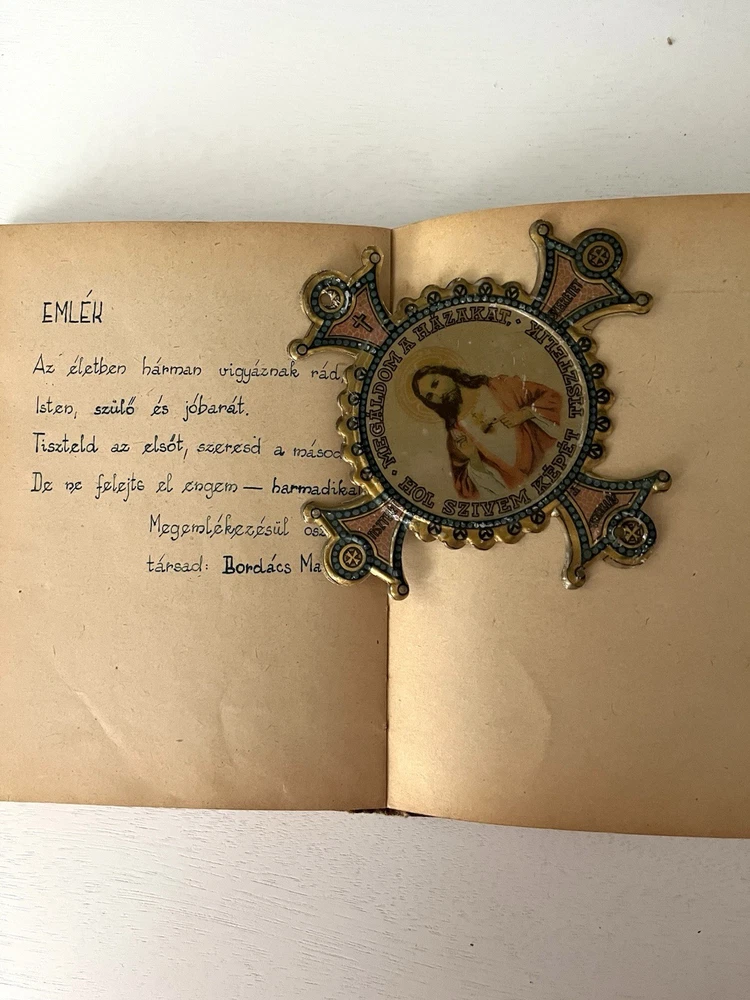 EMLÉK
Az életben hárman vigyáznak rád
Isten, szülő és jóbarát.
Tiszteld az elsőt, szeresd a másod
De ne felejts el engem — harmadikat
Megemlékezésül osz
társad: Bordács Ma
· MEGÁLDOM A HÁZAKAT, ·
HOL SZIVEM KÉPÉT
TISZTELIK